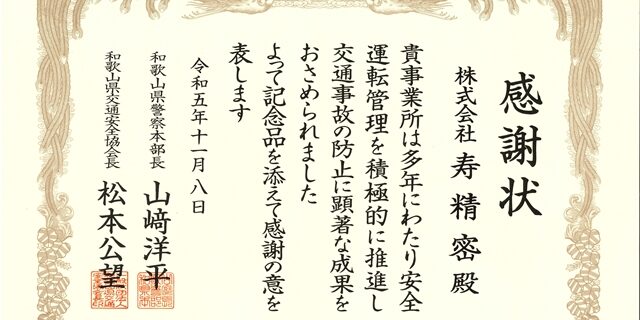 感謝状
株式会社 寿精密殿
貴事業所は多年にわたり安全
運転管理を積極的に推進し
交通事故の防止に顕著な成果を
おさめられました
よって記念品を添えて感謝の意を
表します
令和五年十一月八日
和歌山県警察本部長 山﨑洋平
和歌山県交通安全協会長 松本公望